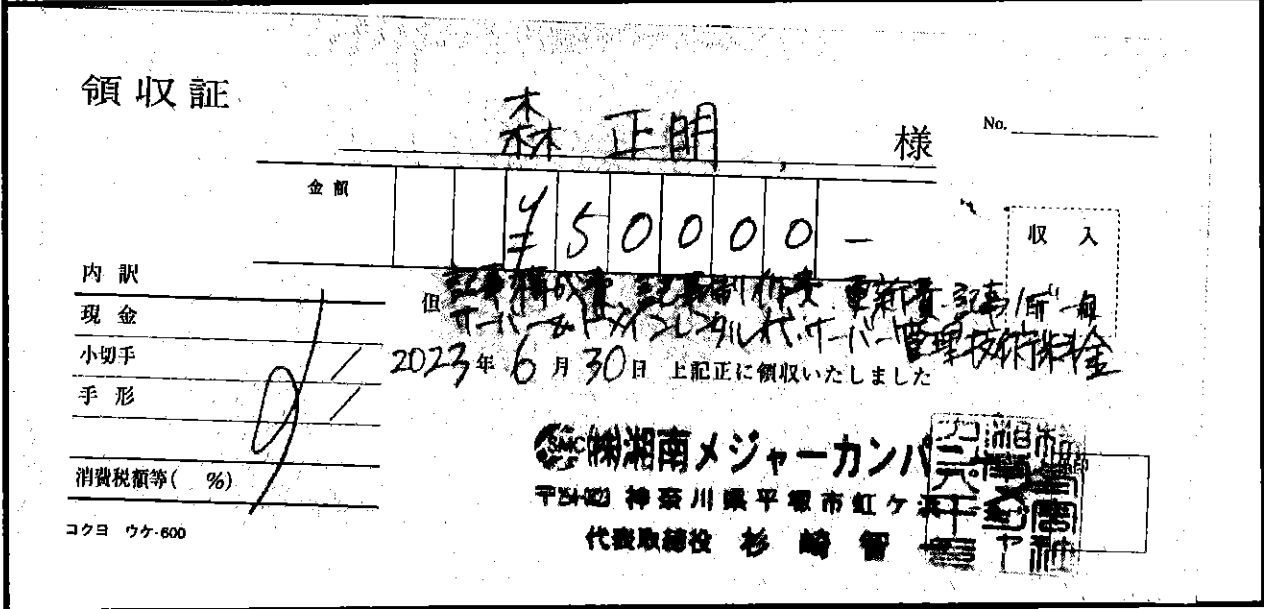 領収証
森 正明 様
No.
金額
¥50000-
収入
内訳
現金
小切手
手形
消費税額等( %)
但 記事構成費 記事制作費 更新費 記事
サーバー&ドメインレンタル代・サーバー管理技術料金
2023年6月30日 上記正に領収いたしました
SMC ㈱湘南メジャーカンパニー
神奈川県平塚市虹ケ浜
代表取締役 杉崎智
コクヨ ウケ-600